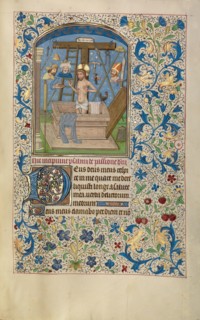 incipiunt psalmi de passione dni
Deus deus meus respi
in me quare me dereli
quisti longe a salute
mea verba delictorum
meorum
Deus meus clamabo per diem et